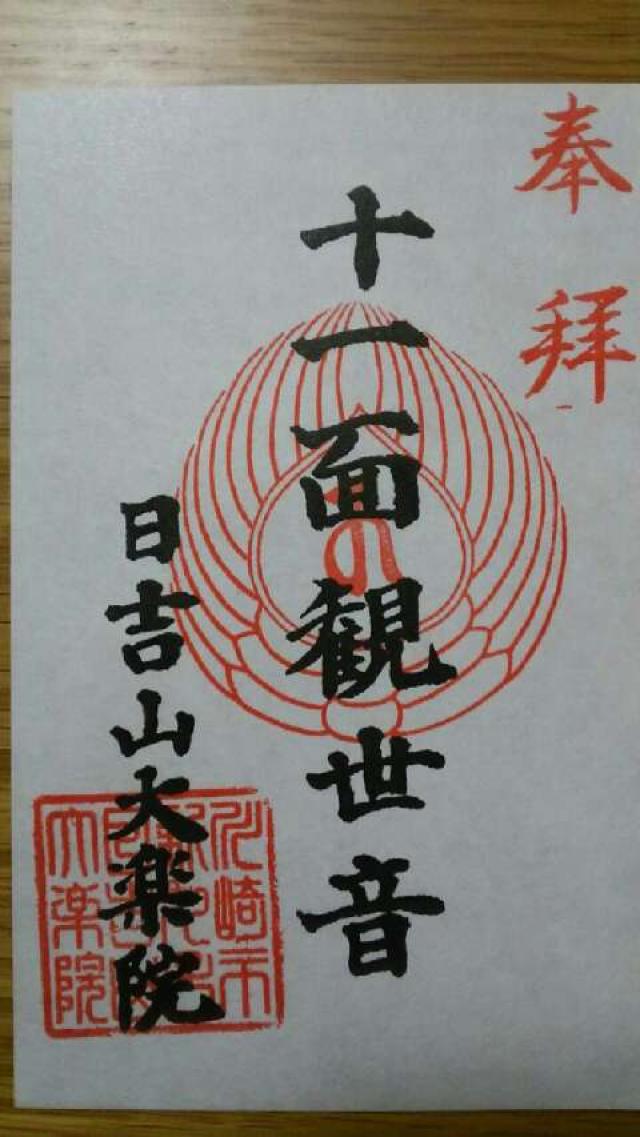 奉拜
十一面観世音
日吉山大楽院
川崎市
大楽院